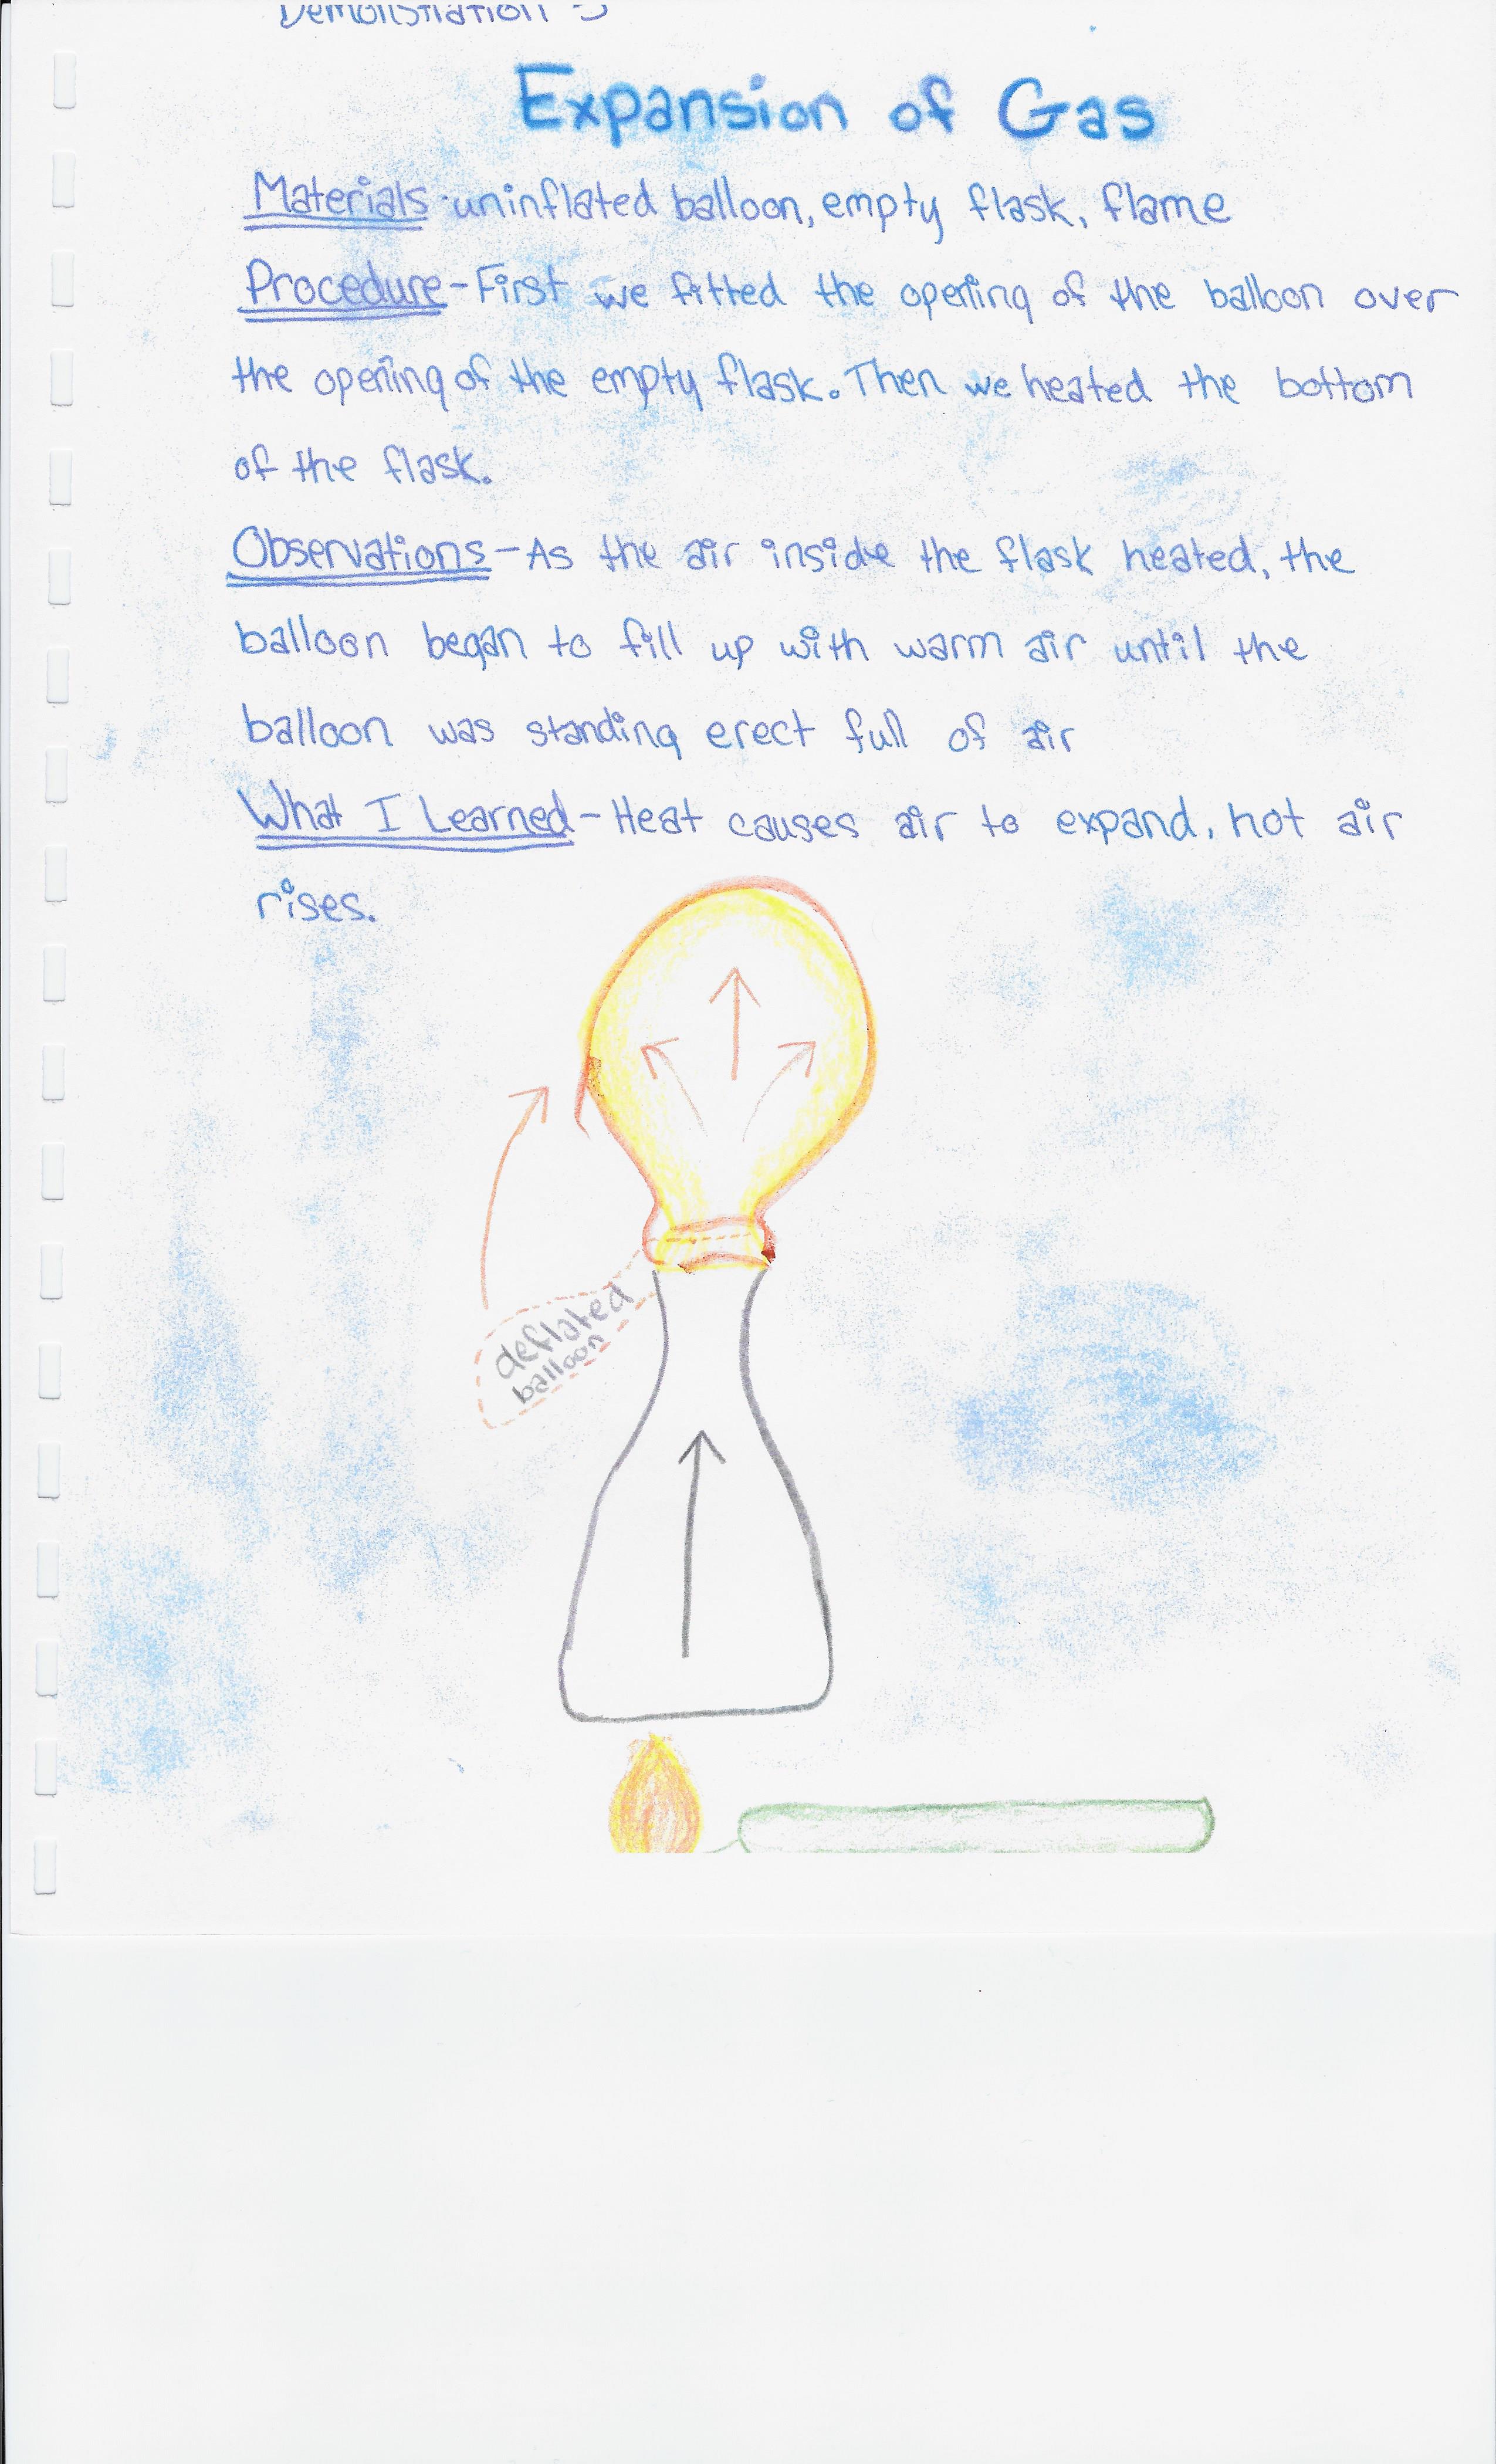 Demonstration 3
Expansion of Gas
Materials - uninflated balloon, empty flask, flame
Procedure - First we fitted the opening of the balloon over
the opening of the empty flask. Then we heated the bottom
of the flask.
Observations - As the air inside the flask heated, the
balloon began to fill up with warm air until the
balloon was standing erect full of air
What I Learned - Heat causes air to expand, hot air
rises.
deflated
balloon